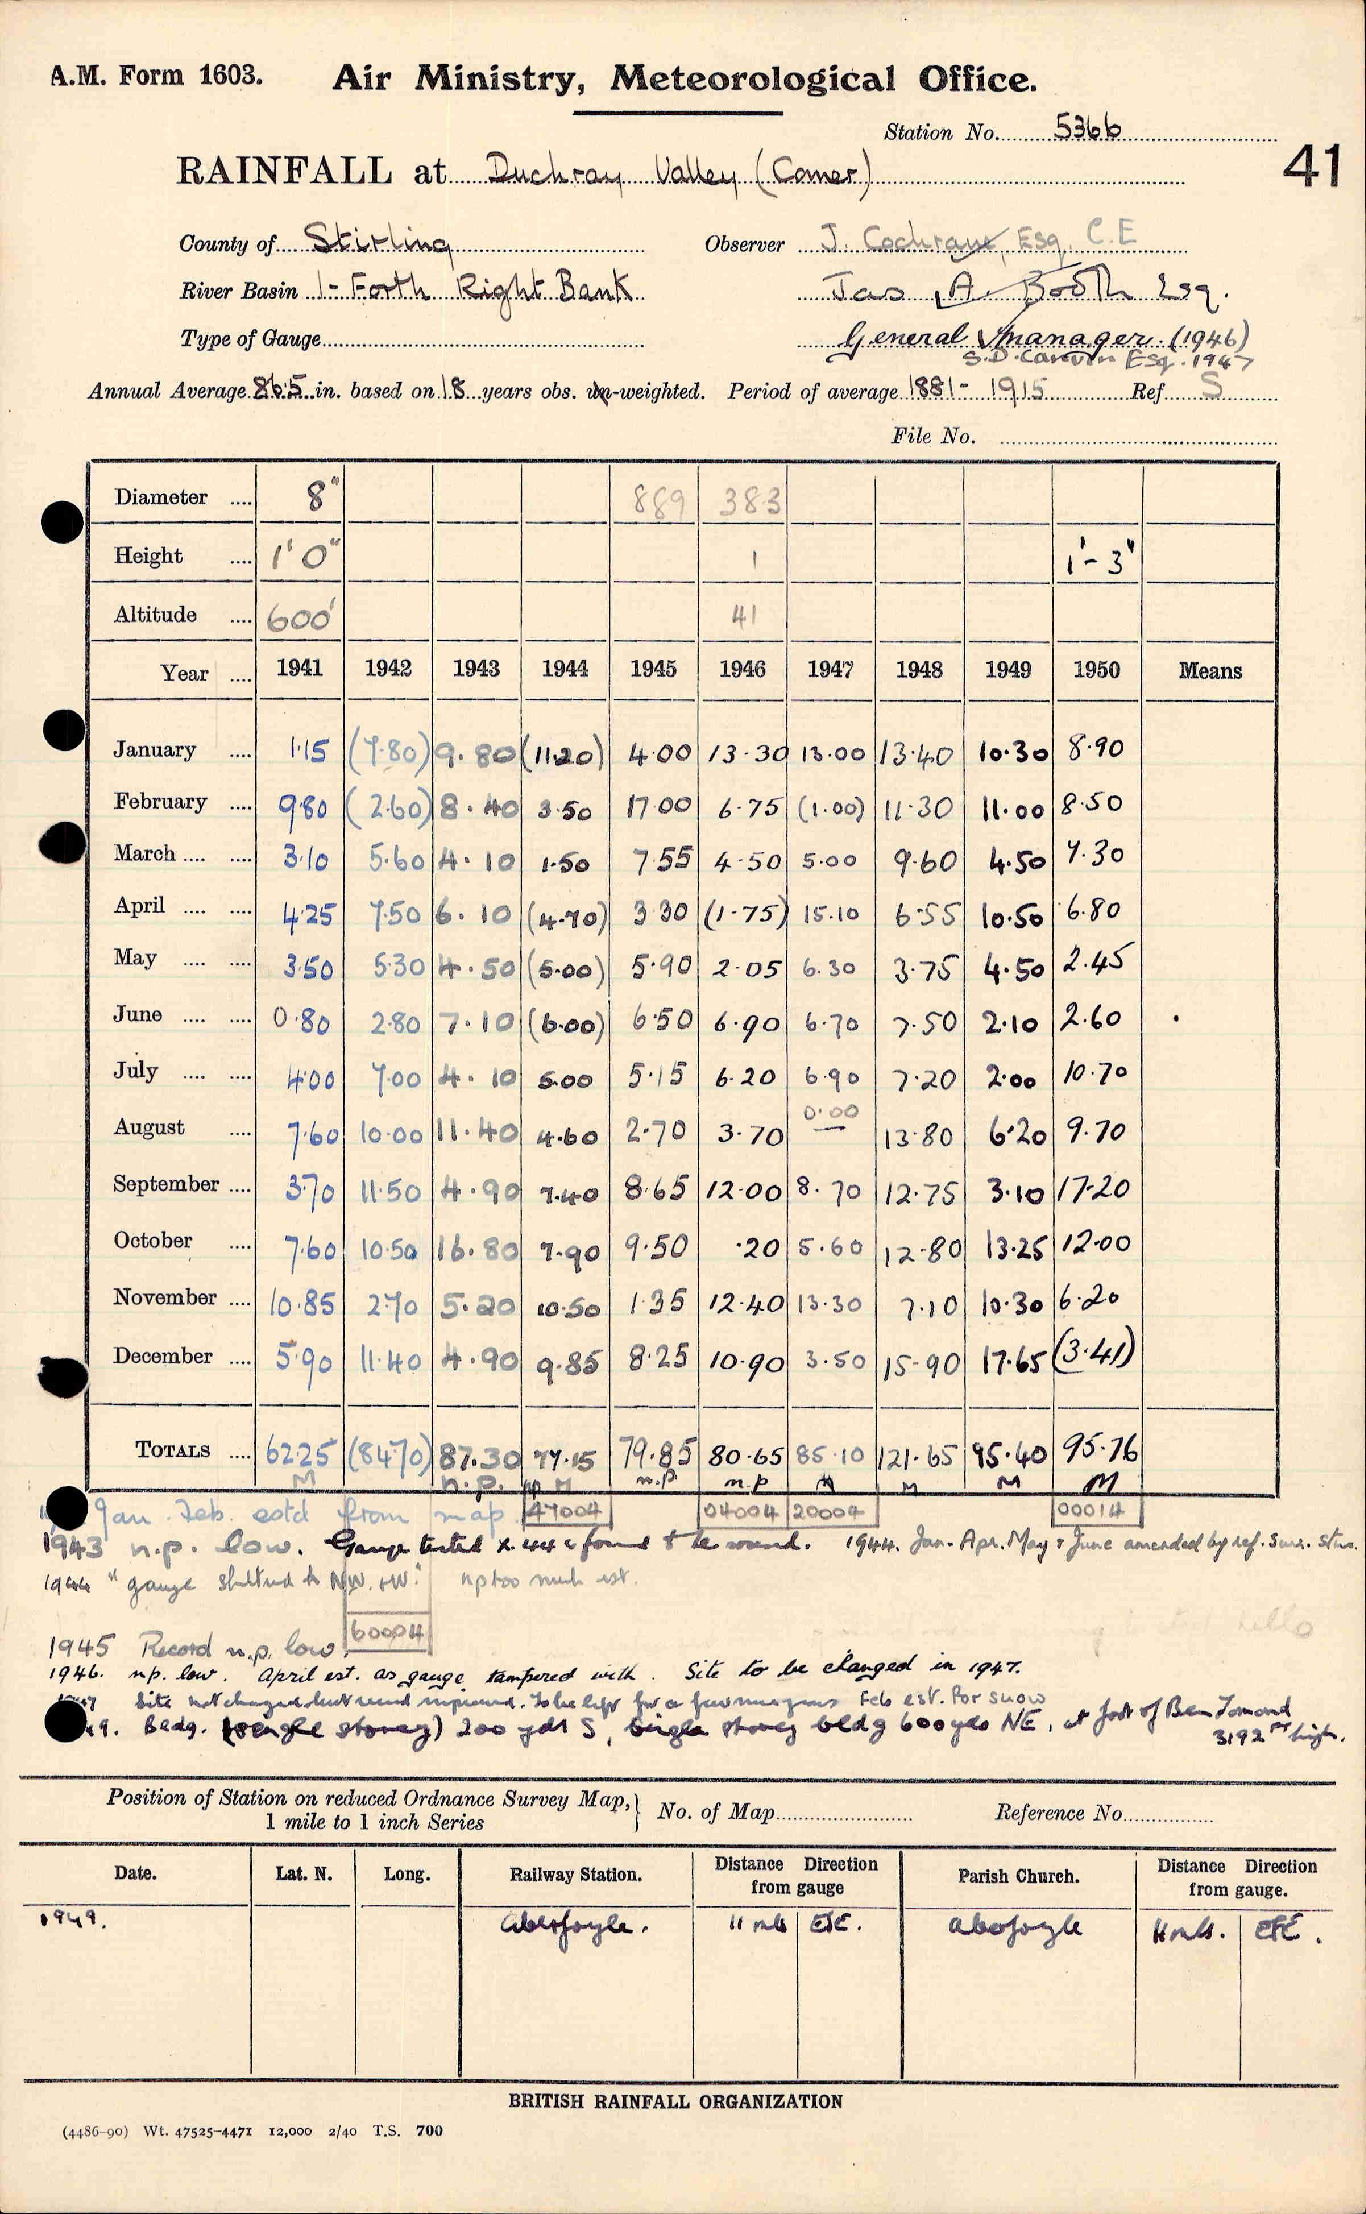 A.M. Form 1603. Air Ministry, Meteorological Office.
Station No. 5366
41
RAINFALL at Duchray Valley (Comer)
County of Stirling Observer J. Cochrane, Esq. C.E
River Basin 1- Forth Right Bank Jas. A. Booth Esq.
Type of Gauge General Manager. (1946)
Esq. 1947
Annual Average 86.5 in. based on 18 years obs. un-weighted. Period of average 1881 - 1915 Ref. S
File No.
Diameter .... 8" 889 383
Height .... 1' 0" 1 1'-3"
Altitude .... 600' 41
Year .... 1941 1942 1943 1944 1945 1946 1947 1948 1949 1950 Means
January .... 1.15 (7.80) 9.80 (11.20) 4.00 13.30 13.00 13.40 10.30 8.90
February .... 9.80 (2.60) 8.40 3.50 17.00 6.75 (1.00) 11.30 11.00 8.50
March .... .... 3.10 5.60 4.10 1.50 7.55 4.50 5.00 9.60 4.50 7.30
April .... .... 4.25 7.50 6.10 (4.70) 3.30 (1.75) 15.10 6.55 10.50 6.80
May .... .... 3.50 5.30 4.50 (5.00) 5.90 2.05 6.30 3.75 4.50 2.45
June .... .... 0.80 2.80 7.10 (6.00) 6.50 6.90 6.70 7.50 2.10 2.60
July .... .... 4.00 7.00 4.10 5.00 5.15 6.20 6.90 7.20 2.00 10.70
August .... 7.60 10.00 11.40 4.60 2.70 3.70 0.00 13.80 6.20 9.70
September .... 3.70 11.50 4.90 7.40 8.65 12.00 8.70 12.75 3.10 17.20
October .... 7.60 10.50 16.80 7.90 9.50 .20 5.60 12.80 13.25 12.00
November .... 10.85 2.70 5.20 10.50 1.35 12.40 13.30 7.10 10.30 6.20
December .... 5.90 11.40 4.90 9.85 8.25 10.90 3.50 15.90 17.65 (3.41)
TOTALS .... 62.25 (84.70) 87.30 77.15 79.85 80.65 85.10 121.65 95.40 95.76
M n.p. np M n.p. n.p M M M M
Jan. Feb. estd from map. 47004 04004 20004 00014
1943 n.p. low. Gauge tested x.44 & found to be sound. 1944. Jan. Apr. May & June amended by ref. Surr. Stns.
1944 "gauge sheltered to NW. & W." np too much est.
60004
1945 Record n.p. low.
1946. n.p. low. April est. as gauge tampered with. Site to be changed in 1947.
Site not changed but record improved. To be left for a few Feb est. for snow
49. Bldg. (single storey) 200 yds S, single storey bldg 600 yds NE, at foot of Ben Lomond
3192 ft high.
Position of Station on reduced Ordnance Survey Map, } No. of Map Reference No.
1 mile to 1 inch Series
Date. Lat. N. Long. Railway Station. Distance Direction from gauge Parish Church. Distance Direction from gauge.
1949. Aberfoyle. 11 mls ESE. Aberfoyle 11 mls. ESE.
BRITISH RAINFALL ORGANIZATION
(4486-90) Wt. 47525-4471 12,000 2/40 T.S. 700